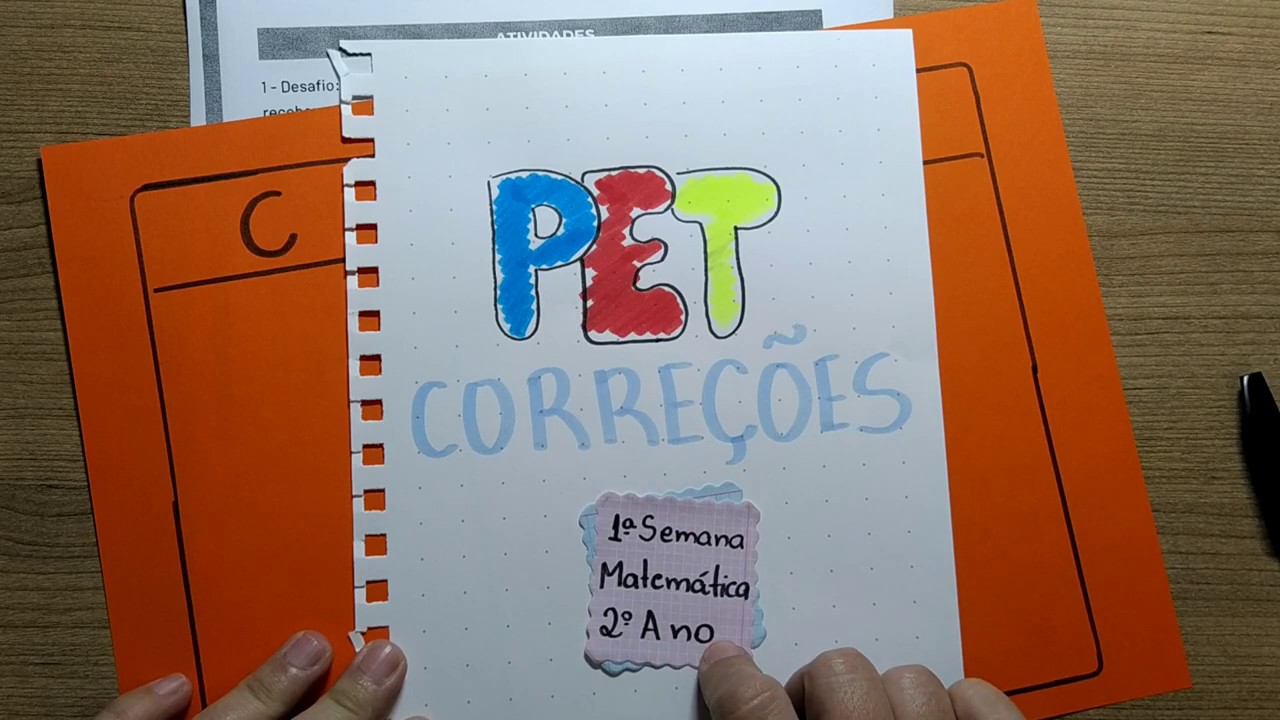 ATIVIDADES
1 - Desafio:
C
PET
CORREÇÕES
1ª Semana
Matemática
2º Ano